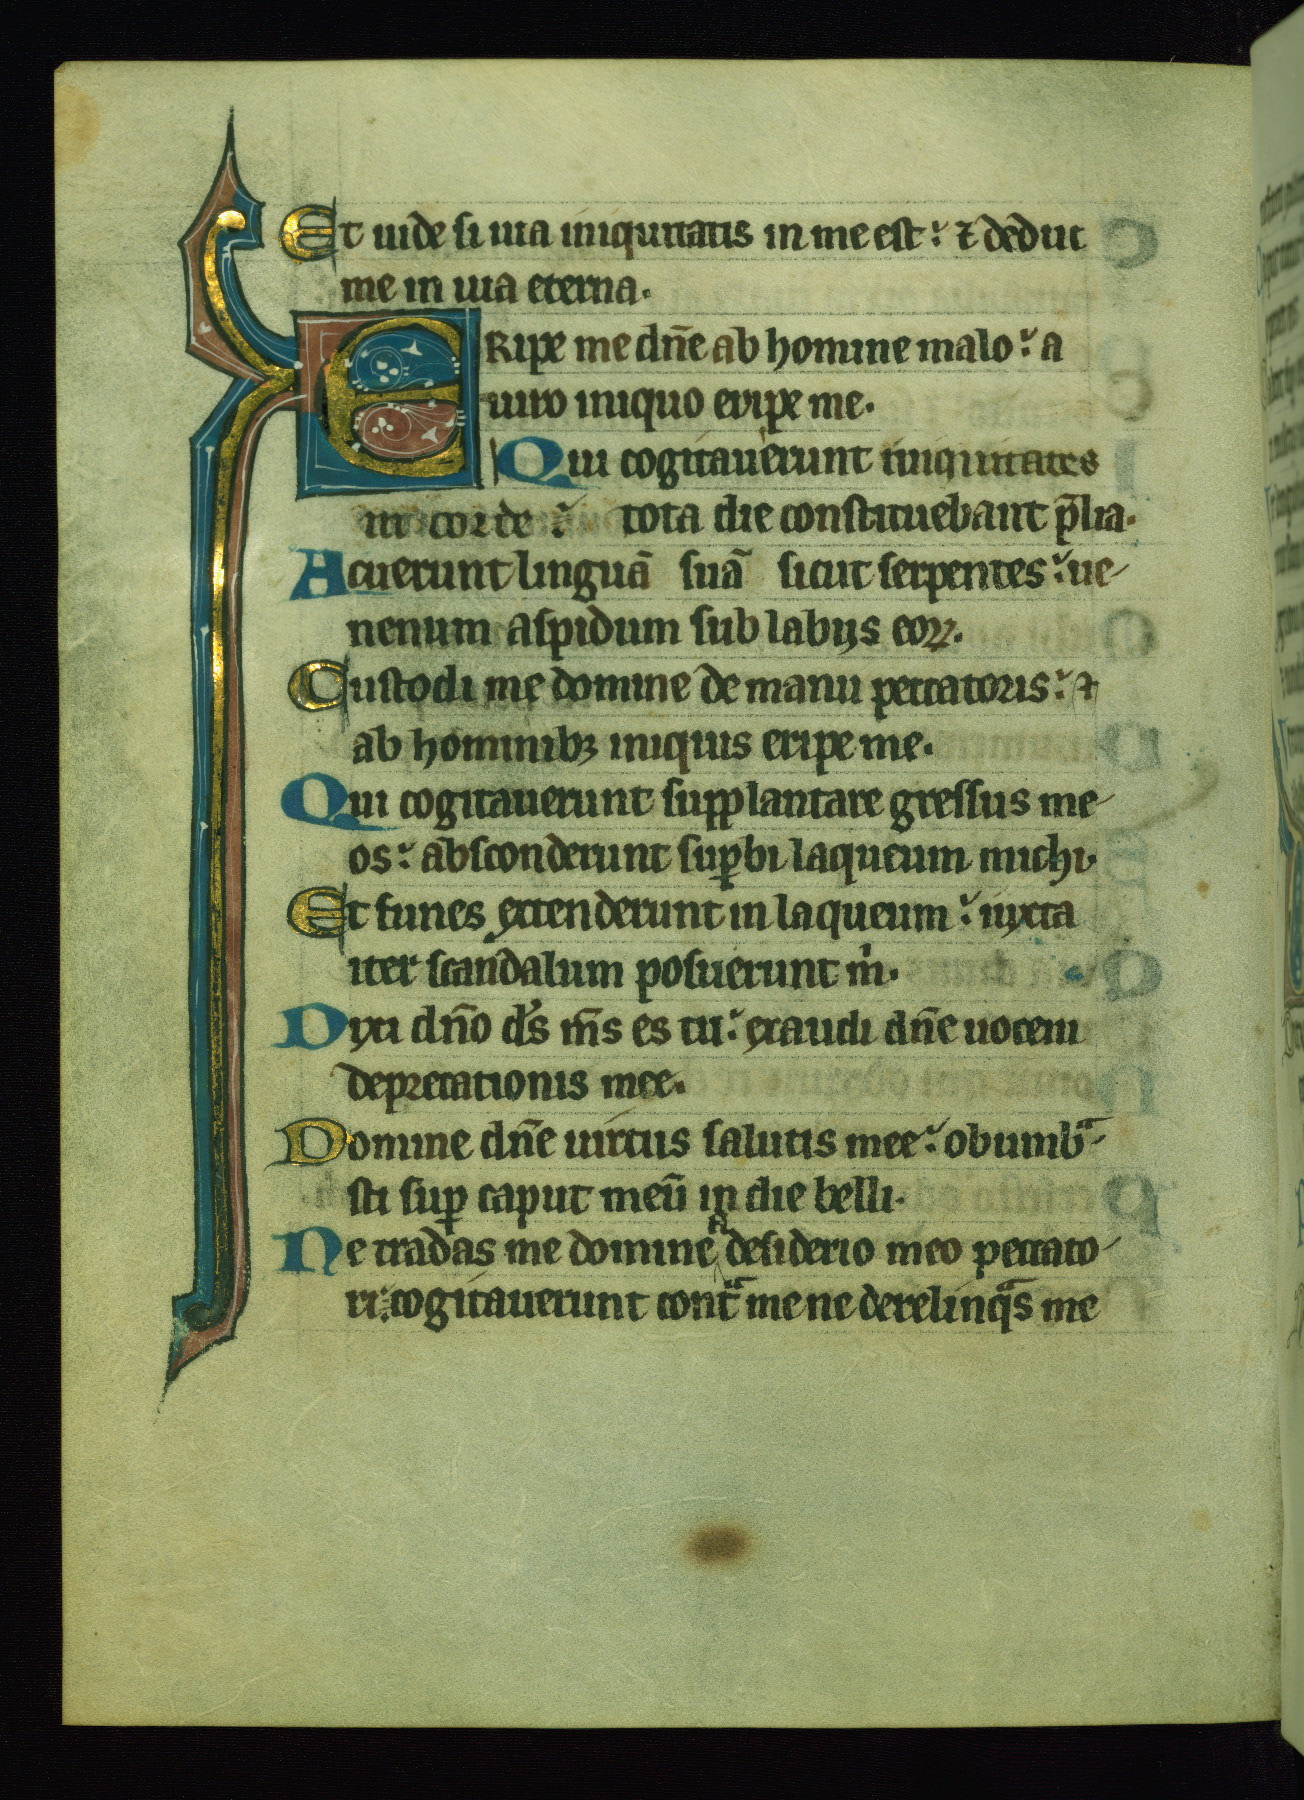 Et uide si uia iniquitatis in me est: ⁊ deduc
me in uia eterna.
ERipe me dn̄e ab homine malo: a
uiro iniquo eripe me.
Qui cogitauerunt iniquitates
in corde : tota die constituebant p̄lia.
Acuerunt linguā suā sicut serpentes: ue-
nenum aspidum sub labijs eoꝝ.
Custodi me domine de manu peccatoris: ⁊
ab hominibꝫ iniquis eripe me.
Qui cogitauerunt supplantare gressus me-
os: absconderunt suꝑbi laqueum michi.
Et funes extenderunt in laqueum: iuxta
iter scandalum posuerunt m̍.
Dixi dn̄o ds̄ ms̄ es tu: exaudi dn̄e uocem
deprecationis mee.
Domine dn̄e uirtus salutis mee: obumbᵃ-
sti suꝑ caput meū in die belli.
Ne tradas me domine a desiderio meo peccato-
ri: cogitauerunt contᵃ me ne derelinqᵃs me